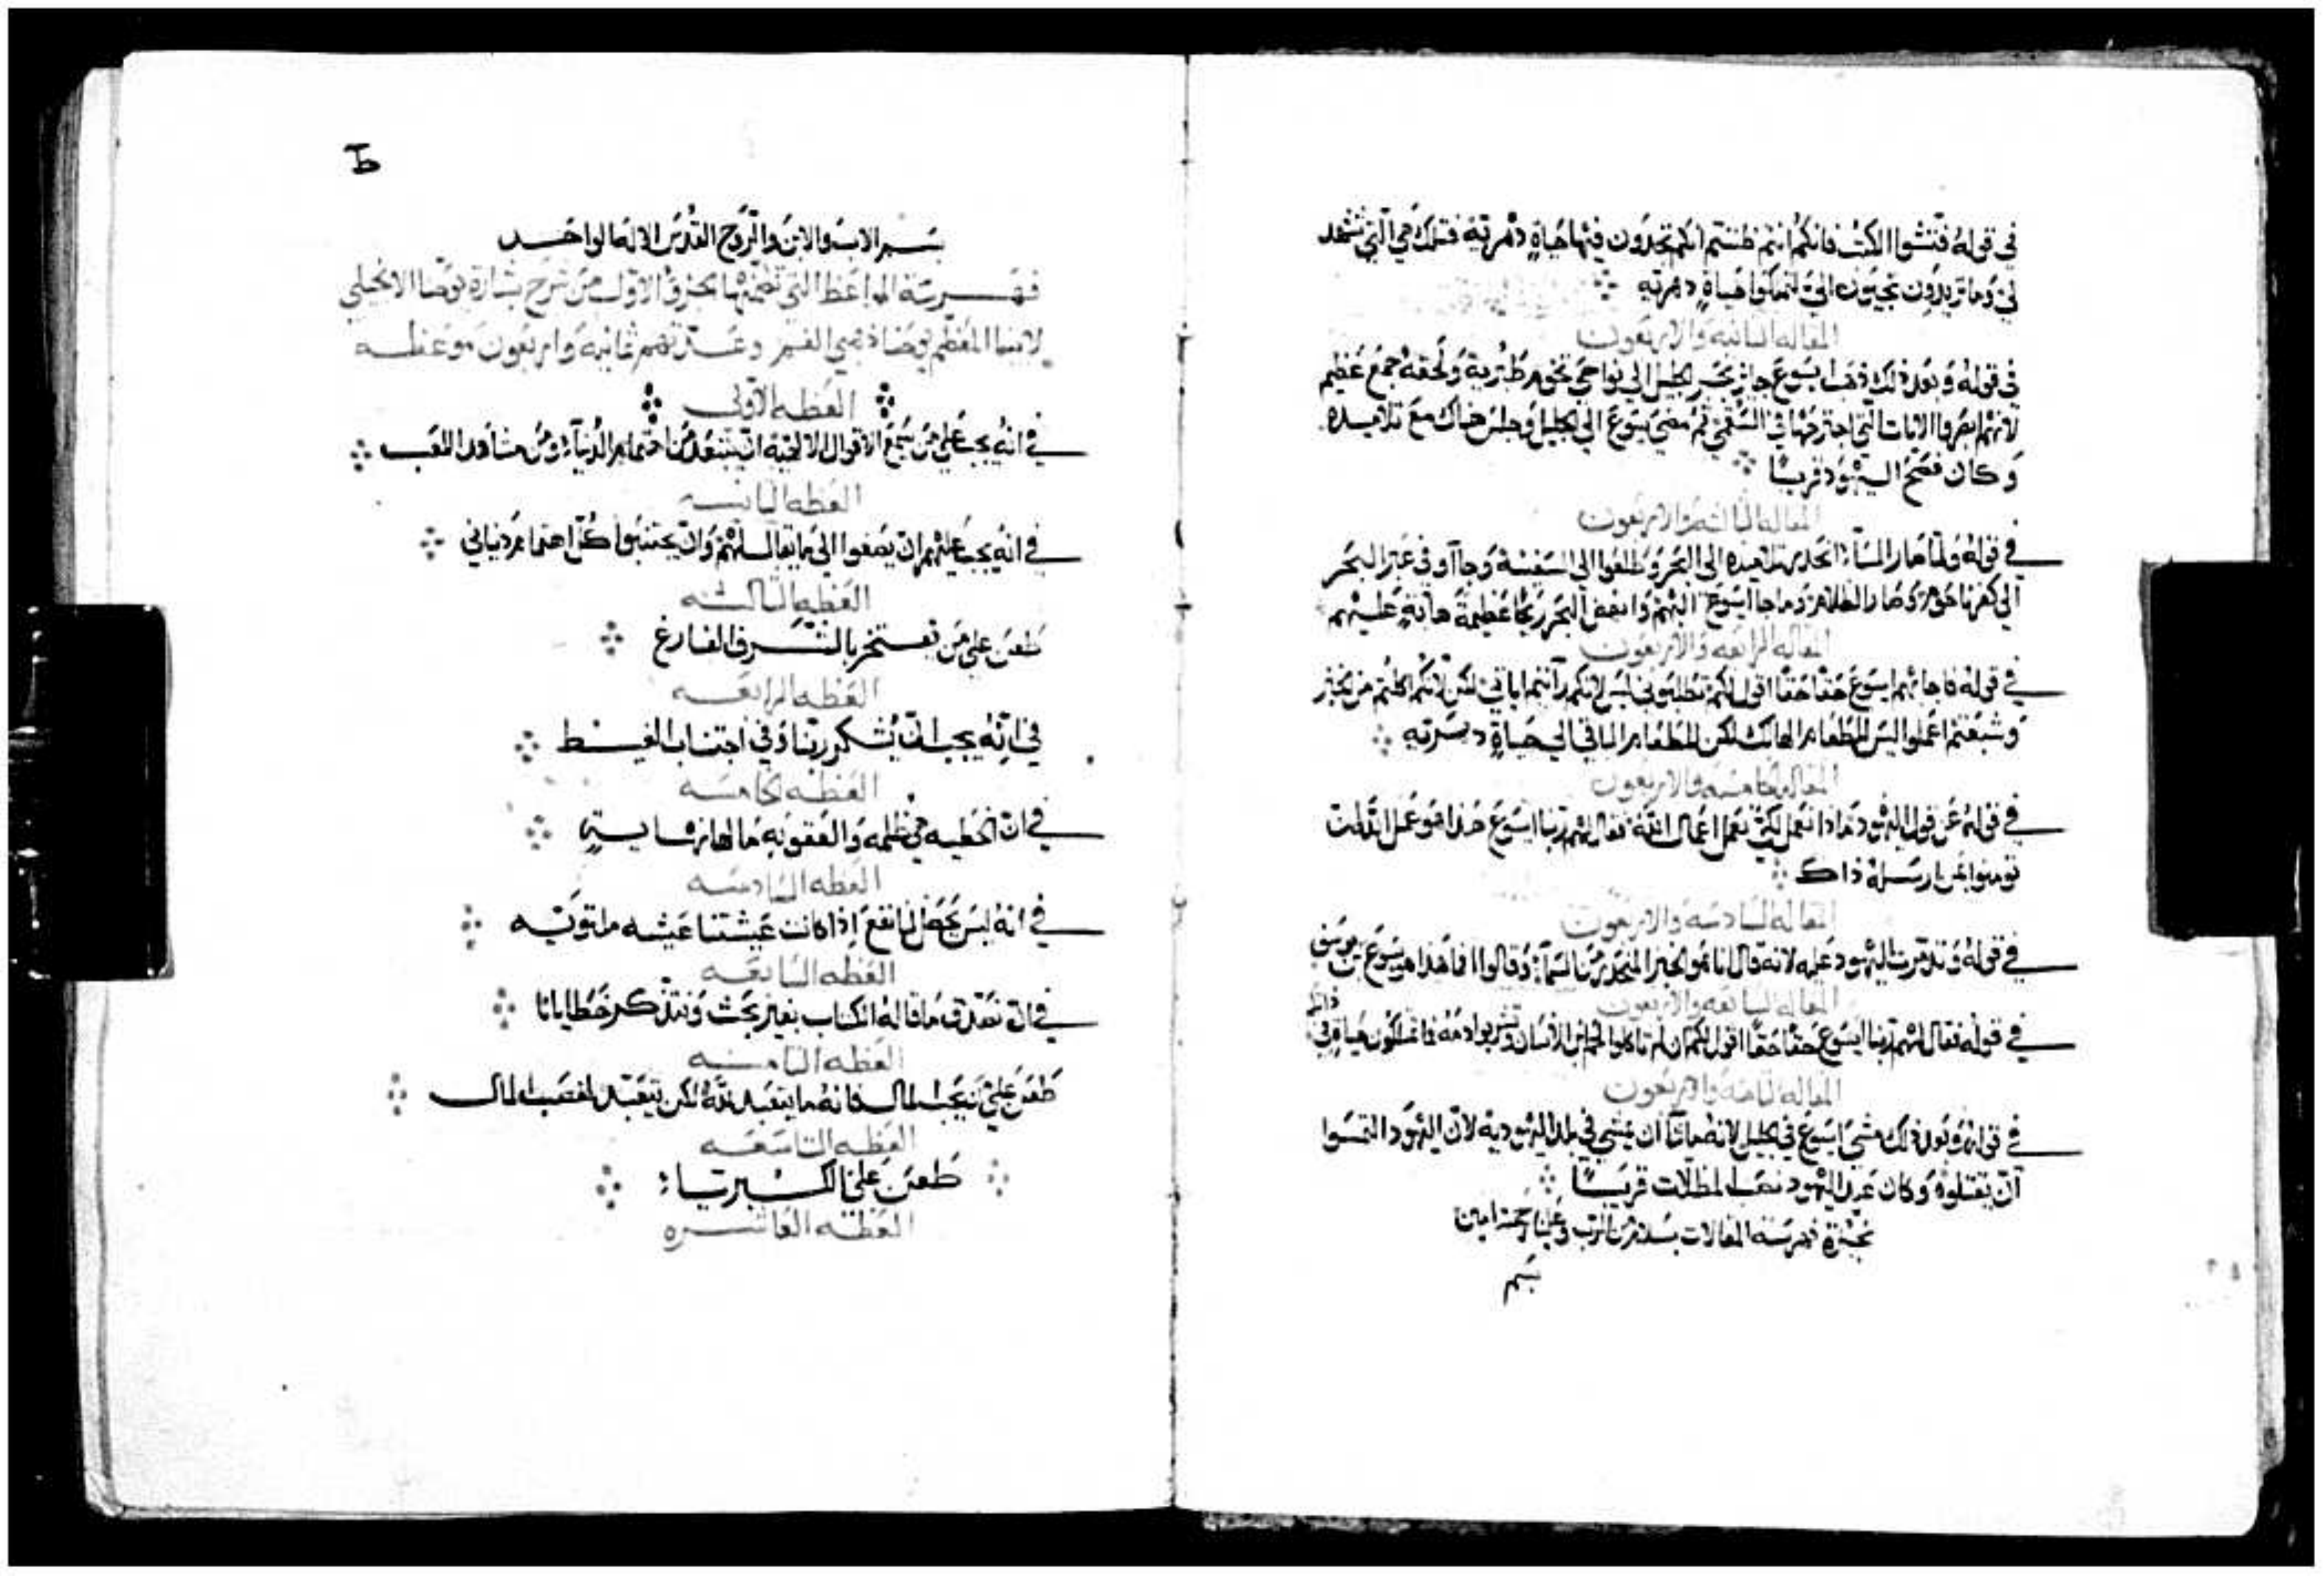 في قوله فتشوا الكتب فانكم انتم ظننتم انكم تجدون فيها حياةٍ دهرتيه فتلك هي التي تشهد
لي وما تريدون تجيون اليّ لتملكوا حياةٍ دهرتيه
المقاله الثانيه والاربعون
في قوله وبعد ذلك ذهب يسوع جايز بحر الجليل الي نواحي تخوم طبرية ولحقه جمع عظيم
لانهم ابصروا الايات التي اجترحها في السقمي ثم مضي يسوع الي الجليل وجلس هناك مع تلاميذه
وكان فصح اليهود قريبًا
المقاله الثالثه والاربعون
في قوله ولما صار المسآء انحدر تلاميذه الي البحر وطلعوا الي السفينة وجآاو في عبر البحر
الي كفرناحوم وصار الظلام وما جا ايسوع اليهم وانهض البحر ريحًا عظيمة هابة عليهم
المقاله الرابعه والاربعون
في قوله فاجابهم ايسوع حقا حقا اقول لكم تطلبوني ليس لانكم رآيتم اياتي لكن لانكم اكلتم من الخبز
وشبعتم اعملوا ليس للطعام الهالك لكن للطعام الباقي الي حياةٍ دهرتيه
المقاله الخامسه والاربعون
في قوله عن قول اليهود ماذا نعمل لكي نعمل اعمال الله فقال لهم ربنا ايسوع هذا هو عمل الله ان
تومنوا بمن ارسله ذاك
المقاله السادسه والاربعون
في قوله وتذمرت اليهود عليه لانه قال انا هو الخبز المنحدر من السمآء وقالوا افما هذا هو يسوع بن يوسف
المقاله السابعه والاربعون
في قوله فقال لهم ربنا ايسوع حقا حقا اقول لكم ان لم تاكلوا لحم ابن الانسان وتشربوا دمه فما تملكون حياة في ذاتكم
المقاله الثامنه والاربعون
في قوله وبعد ذلك مشي ايسوع في الجليل لانه ما شآء ان يمشي في بلد اليهودية لان اليهود التمسوا
آن يقتلوه وكان عيد اليهود نصب المظلات قريبًا
نجزة فهرسة المقالات بسلام من الرب وعلينا رحمته امين
بسم
بسم الاب والابن والروح القدس الاله الواحد
فهرسة المواعظ التي تضمنها الجزؤ الاول من شرح بشارة يوحنا الانجيلي
لابينا المعظم يوحنا ذهبي الفم وعدتهم ثمانيه واربعون موعظه
العظه الاولي
في انه يجب علي من يسمع الاقوال الالهيه ان يبتعد من اهتمام الدنيآء ومن مشاهد اللعب
العظه الثانيه
في انه يجب عليهم ان يصغوا الي ما يقال لهم وان يجتنبوا كل اهتمام دنياني
العظه الثالثه
طعن علي من يفتخر بالشرف الفارغ
العظه الرابعه
في انه يجب ان يُشكر ربنا وفي اجتناب الغيظ
العظه الخامسه
في ان الخطيه هي ظلمه والعقوبه ما لها نهايةٍ
العظه السادسه
في انه ليس يحصل لنا نفع اذا كانت عيشتنا عيشه ملتويه
العظه السابعه
في ان نصدق ما قاله الكتاب بغير بحث ونتذكر خطايانا
العظه الثامنه
طعن علي من يحب المال فانه ما يتعبد لله لكن يتعبد لغصب المال
العظه التاسعه
طعن علي الكبرياء
العظه العاشره